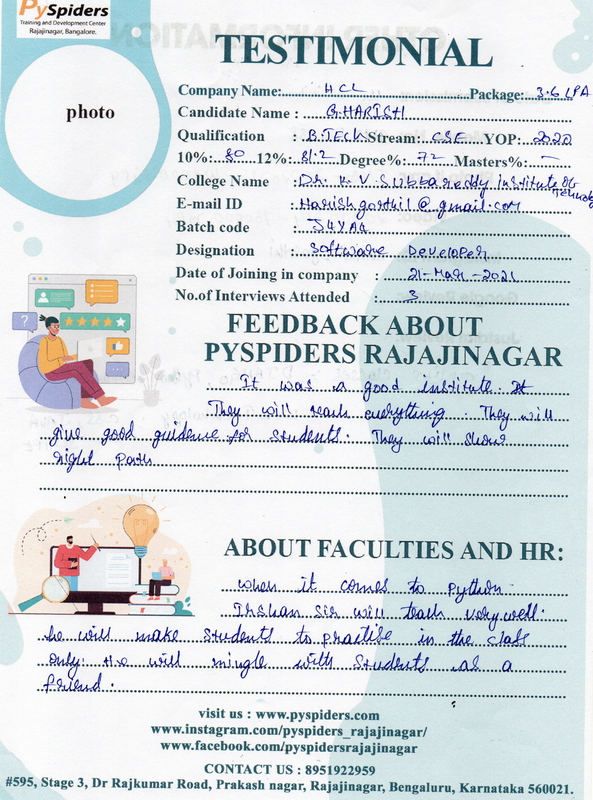 PySpiders
Training and Development Center
Rajajinagar, Bangalore.
TESTIMONIAL
photo
Company Name: HCL Package: 3.6 LPA
Candidate Name : G.HARISH
Qualification : B.TECH Stream: CSE YOP: 2020
10%: 80 12%: 81.2 Degree%: 72 Masters%: -
College Name : Dr. K V Subbareddy institute of Technology
E-mail ID :
Batch code :
Designation : Software Developer
Date of Joining in company : 21-Mar-2021
No.of Interviews Attended : 3
FEEDBACK ABOUT
PYSPIDERS RAJAJINAGAR
It was a good institute. It
They will teach everything. They will
give good guidence for students. They will show
right path
ABOUT FACULTIES AND HR:
when it comes to python
Irshan sir will teach very well.
he will make students to practise in the class
only. He will mingle with students as a
friend.
visit us : www.pyspiders.com
www.instagram.com/pyspiders_rajajinagar/
www.facebook.com/pyspidersrajajinagar
CONTACT US : 8951922959
#595, Stage 3, Dr Rajkumar Road, Prakash nagar, Rajajinagar, Bengaluru, Karnataka 560021.